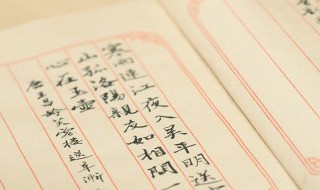 寒雨連江夜入吴平明送
山孤洛陽親友如相問一
心在玉壺
唐王昌齡芙蓉樓送辛漸